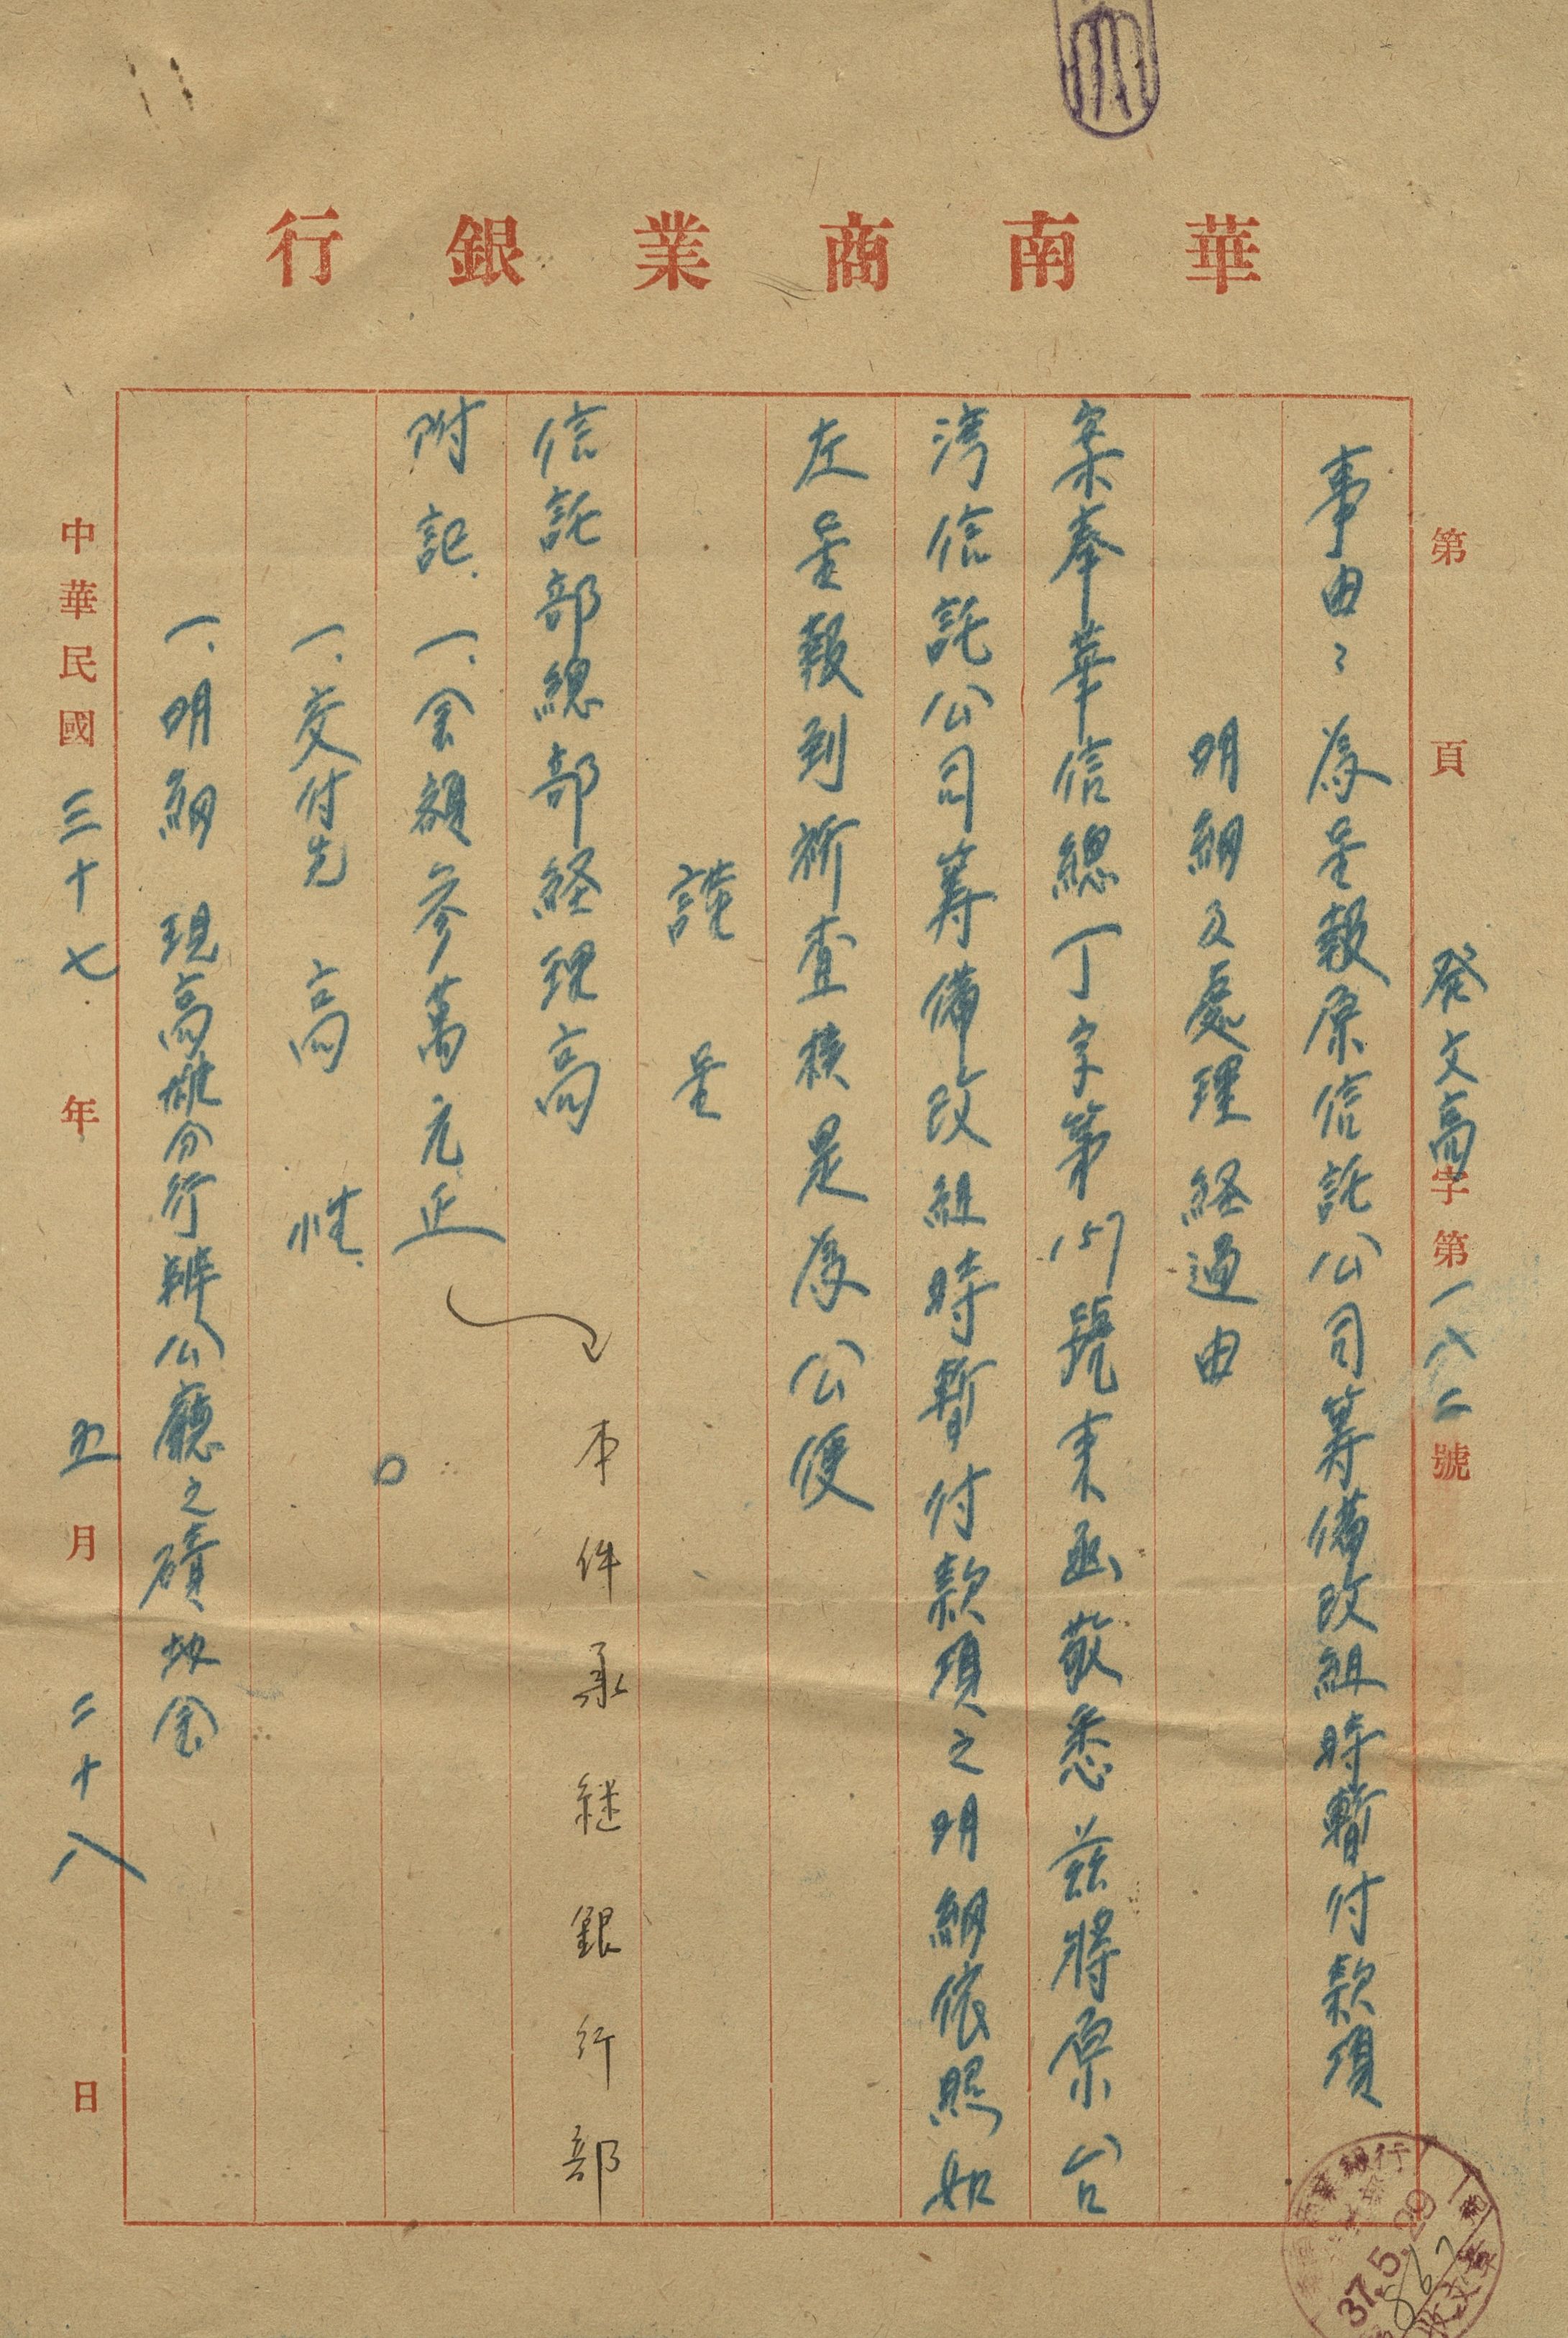 華南商業銀行
第 頁 發文高字第一八二號
事由:為呈報原信託公司籌備改組時暫付款項
明細及處理経過由
案奉華信總丁字第157號來函敬悉茲將原台
湾信託公司籌備改組時暫付款項之明細依照如
左呈報到祈查核是為公便
謹呈
信託部總部経理高
附記 一.金額參萬元正
本件承継銀行部
一.交付先 高 性
一.明細 現高雄分行辦公廳之積地金
中華民國三十七年五月二十八日
37.5.29